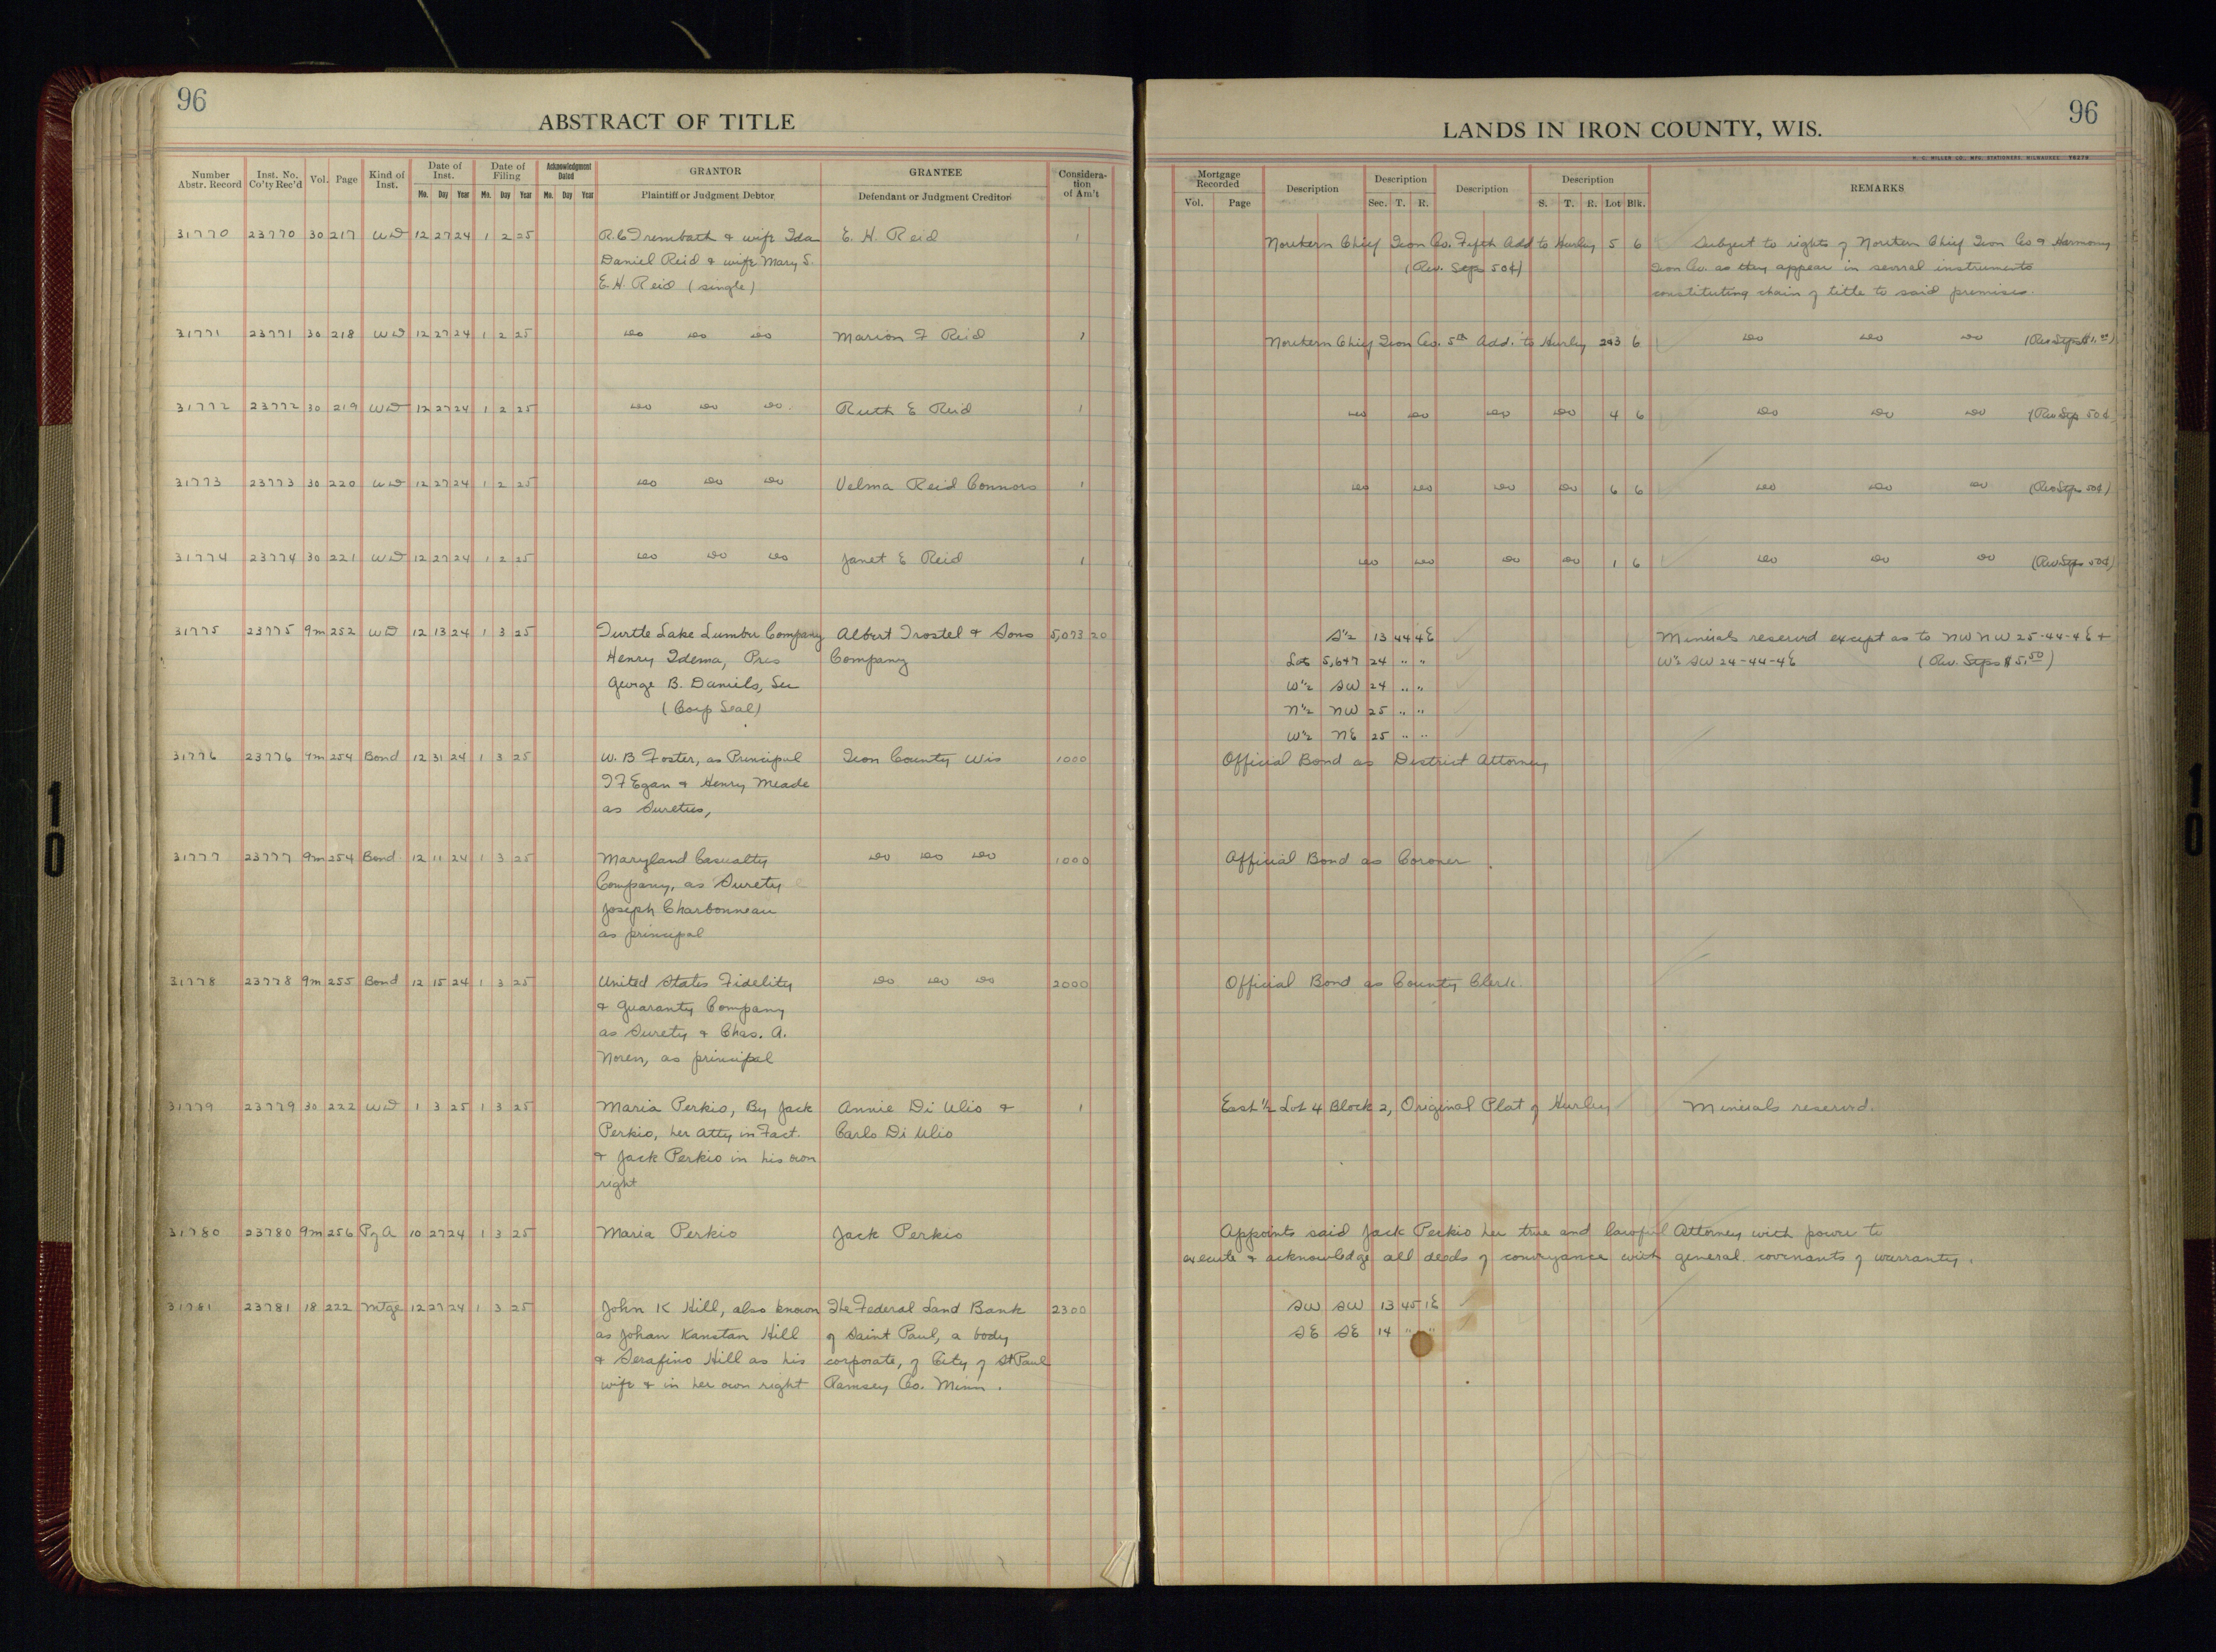 96
ABSTRACT OF TITLE
Number Abstr. Record Inst. No. Co'ty Rec'd Vol. Page Kind of Inst. Date of Inst. Date of Filing Acknowledgment Dated GRANTOR GRANTEE Consideration of Am't
Mo. Day Year Mo. Day Year Mo. Day Year Plaintiff or Judgment Debtor Defendant or Judgment Creditor
31770 23770 30 217 WD 12 27 24 1 2 25 R.C. Trembath & wife Ida E. H. Reid 1
Daniel Reid & wife Mary S.
E. H. Reid (single)
31771 23771 30 218 WD 12 27 24 1 2 25 do do do Marion F Reid 1
31772 23772 30 219 WD 12 27 24 1 2 25 do do do. Ruth E Reid 1
31773 23773 30 220 WD 12 27 24 1 2 25 do do do Velma Reid Connors 1
31774 23774 30 221 WD 12 27 24 1 2 25 do do do Janet E Reid 1
31775 23775 9m 252 WD 12 13 24 1 3 25 Turtle Lake Lumber Company Albert Trostel & Sons 5,073 20
Henry Idema, Pres Company
George B. Daniels, Sec
(Corp Seal)
31776 23776 9m 254 Bond 12 31 24 1 3 25 W. B Foster, as Principal Iron County Wis 1000
T F Egan & Henry Meade
as Sureties,
31777 23777 9m 254 Bond 12 11 24 1 3 25 Maryland Casualty do do do 1000
Company, as Surety
Joseph Charbonneau
as principal
31778 23778 9m 255 Bond 12 15 24 1 3 25 United States Fidelity do do do 2000
& Guaranty Company
as Surety & Chas. A.
Noren, as principal
31779 23779 30 222 WD 1 3 25 1 3 25 Maria Perkio, By Jack Annie Di Ulio & 1
Perkio, her Atty in Fact. Carlo Di Ulio
& Jack Perkio in his own
right
31780 23780 9m 256 P of A 10 27 24 1 3 25 Maria Perkio Jack Perkio
31781 23781 18 222 Mtge 12 27 24 1 3 25 John K Hill, also known The Federal Land Bank 2300
as Johan Kanstan Hill of Saint Paul, a body
& Serafino Hill as his corporate, of City of St Paul
wife & in her own right Ramsey Co. Minn.
96
LANDS IN IRON COUNTY, WIS.
H. C. MILLER CO., MFG. STATIONERS, MILWAUKEE
Mortgage Recorded Description Description Description Description REMARKS
Vol. Page Sec. T. R. S. T. R. Lot Blk.
Northern Chief Iron Co. Fifth Add to Hurley 5 6 Subject to rights of Northern Chief Iron Co & Harmony
(Rev. Stps 50¢) Iron Co. as they appear in several instruments
constituting chain of title to said premises.
Northern Chief Iron Co. 5th Add. to Hurley 2&3 6 do do do (Rev Stps $1.00)
do do do do 4 6 do do do (Rev Stp 50¢
do do do do 6 6 do do do (Rev Stps 50¢)
do do do do 1 6 do do do (Rev. Stps 50¢)
S½ 13 44 4E Minerals reserved except as to NW NW 25-44-4E &
Lots 5,6&7 24 " " W½ SW 24-44-4E (Rev. Stps $5.50)
W½ SW 24 " "
N½ NW 25 " "
W½ NE 25 " "
Official Bond as District Attorney
Official Bond as Coroner
Official Bond as County Clerk.
East ½ Lot 4 Block 2, Original Plat of Hurley Minerals reserved.
Appoints said Jack Perkio her true and lawful Attorney with power to
execute & acknowledge all deeds of conveyance with general covenants of warranty.
SW SW 13 45 1E
SE SE 14 " "